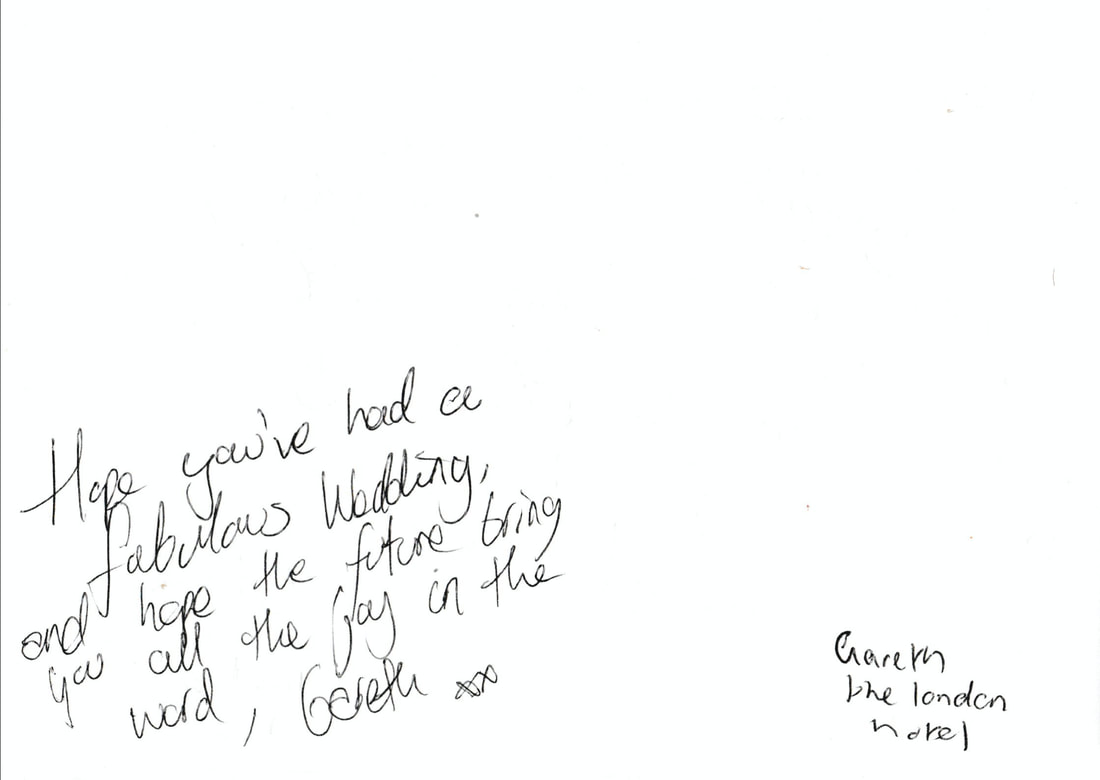 Hope you've had a
fabulous Wedding,
and hope the future bring
you all the joy in the
world, Gareth xx
Gareth
the london
hotel